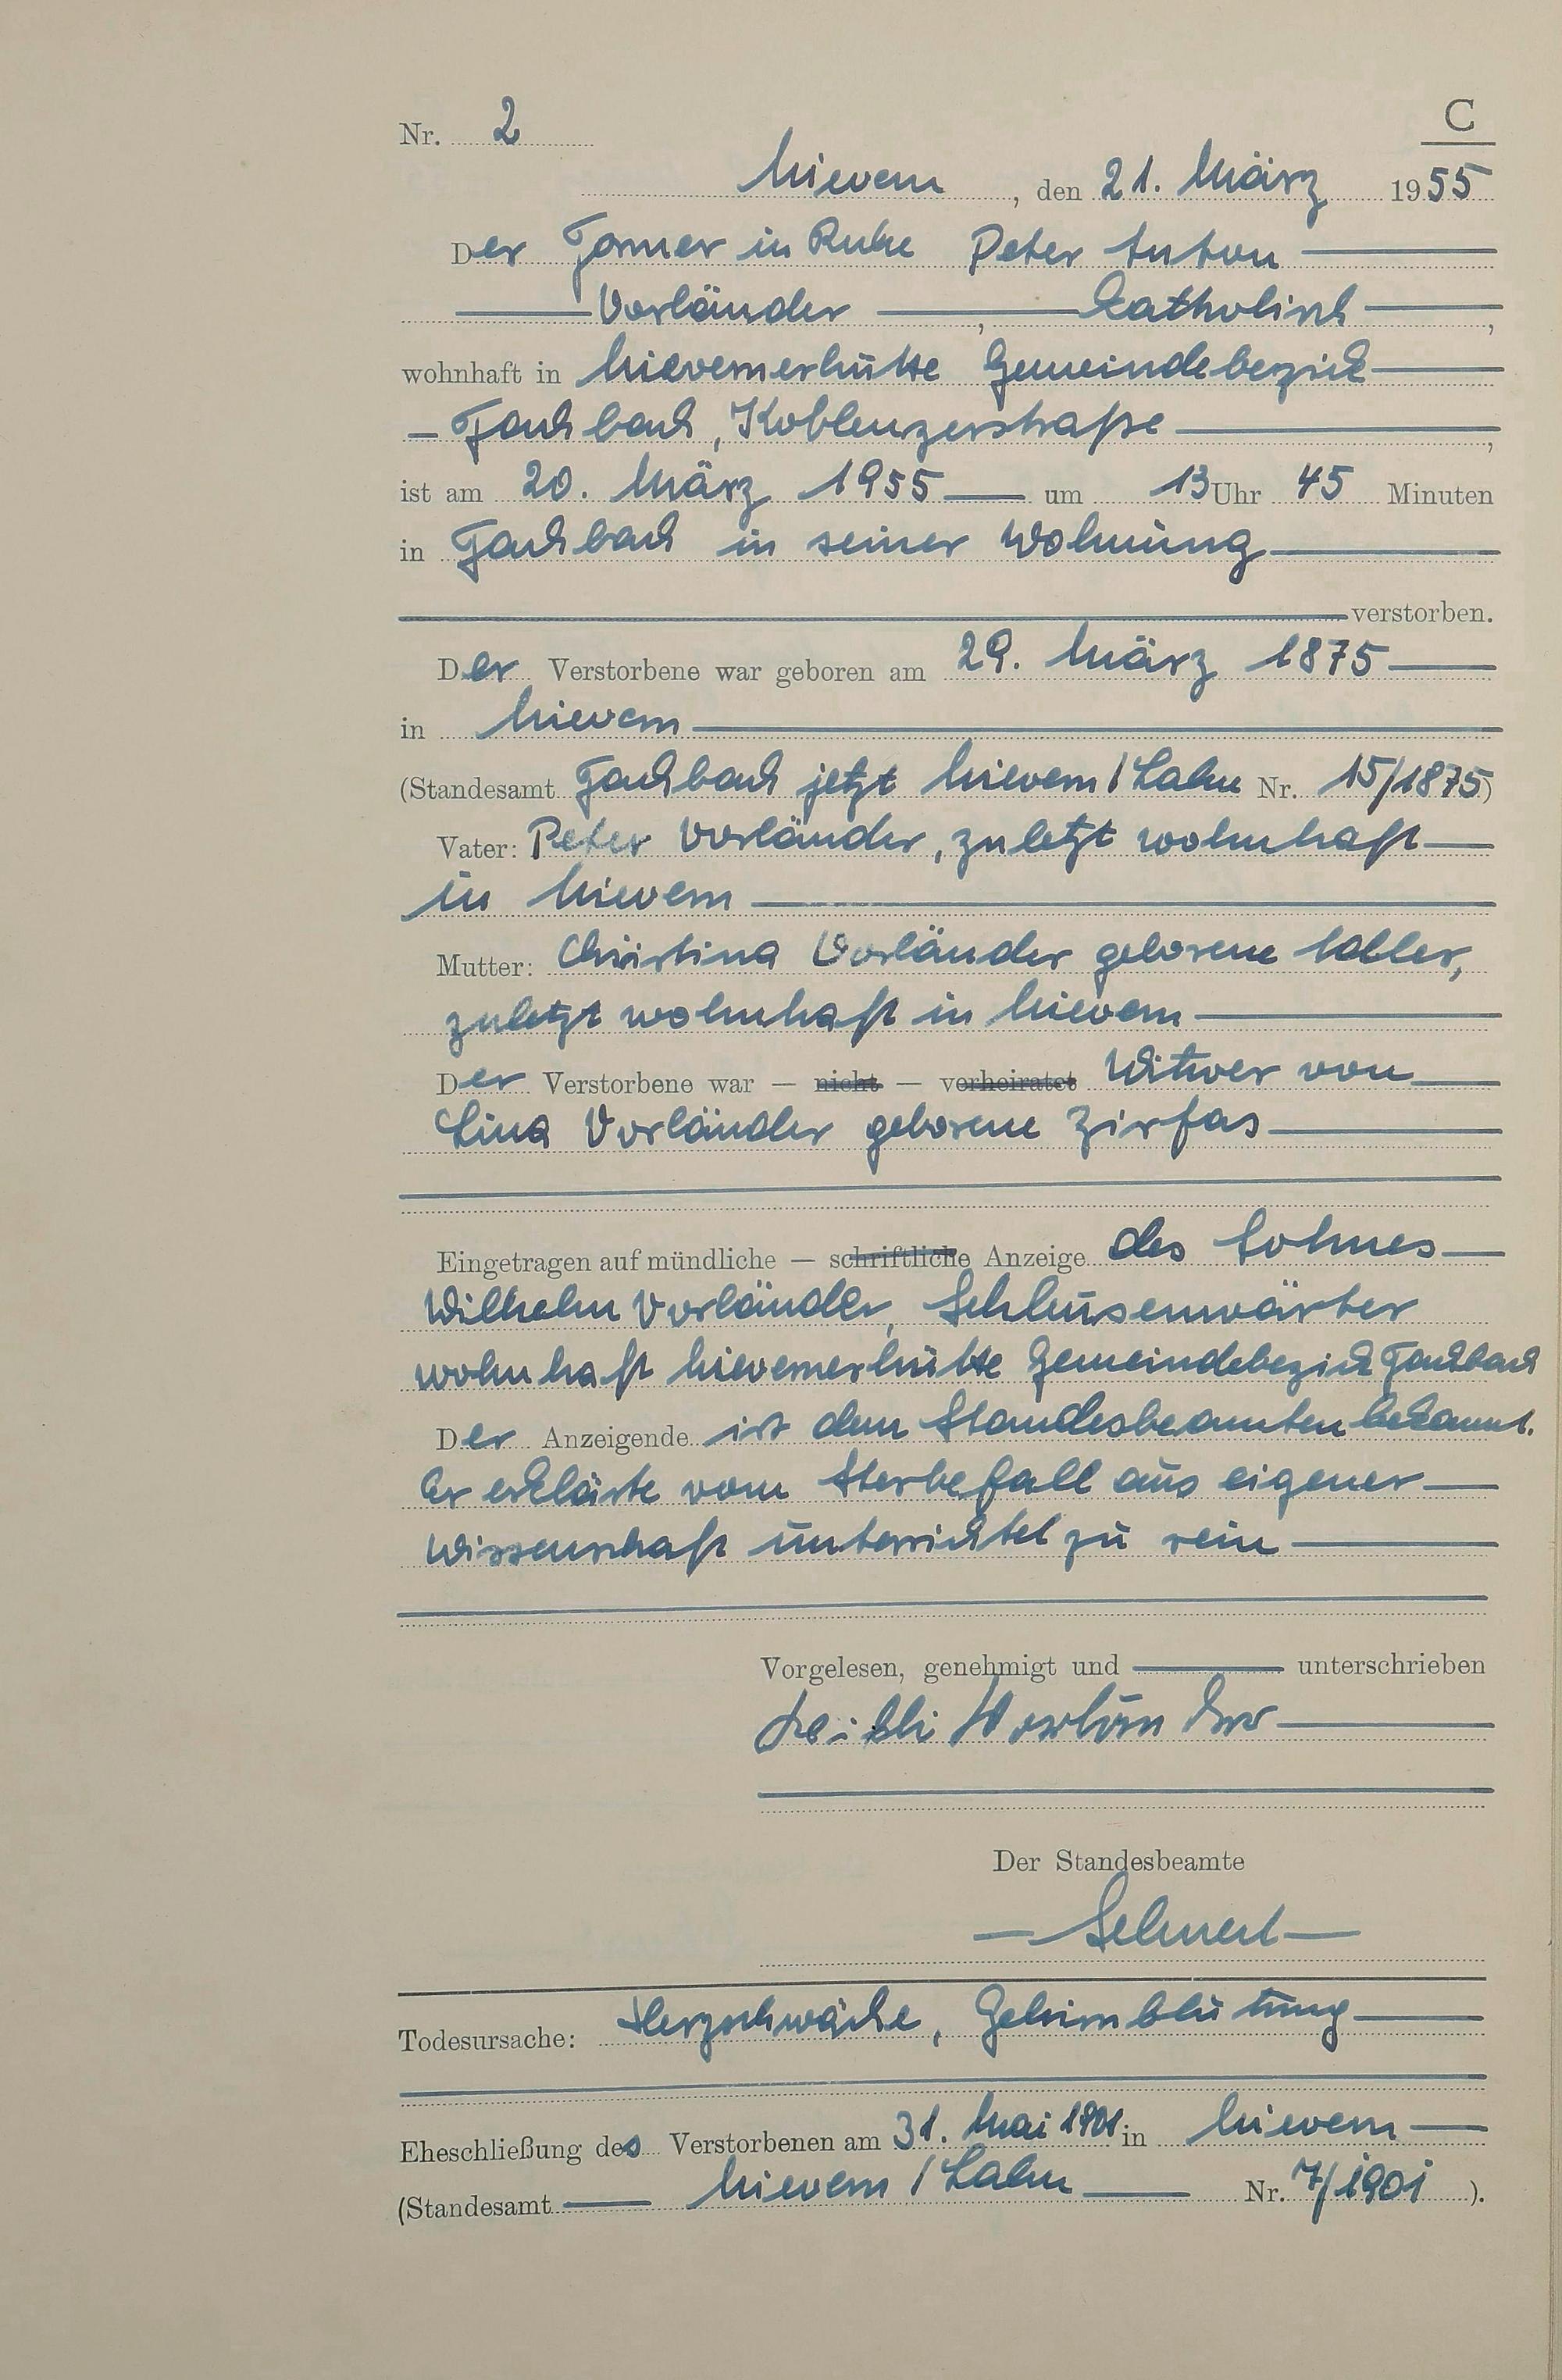 Nr. 2
C
Nievern, den 21. März 1955
Der Former in Ruhe Peter Anton
Vorländer, katholisch,
wohnhaft in Nievernerhütte Gemeindebezirk
Fachbach, Koblenzerstraße,
ist am 20. März 1955 um 13 Uhr 45 Minuten
in Fachbach in seiner Wohnung
verstorben.
Der Verstorbene war geboren am 29. März 1875
in Nievern
(Standesamt Fachbach jetzt Nievern/Lahn Nr. 15/1875)
Vater: Peter Vorländer, zuletzt wohnhaft
in Nievern
Mutter: Christina Vorländer geborene
zuletzt wohnhaft in Nievern
Der Verstorbene war — nicht — verheiratet Witwer von
Lina Vorländer geborene Zirfas
Eingetragen auf mündliche — schriftliche Anzeige des Sohnes
Wilhelm Vorländer, Schleusenwärter
wohnhaft Nievernerhütte Gemeindebezirk Fachbach
Der Anzeigende ist dem Standesbeamten bekannt.
Er erklärte vom Sterbefall aus eigener
Wissenschaft unterrichtet zu sein
Vorgelesen, genehmigt und unterschrieben
Vorländer
Der Standesbeamte
Todesursache: Herzschwäche, Gehirnblutung
Eheschließung des Verstorbenen am 31. Mai 1901 in Nievern
(Standesamt Nievern/Lahn Nr. 7/1901).